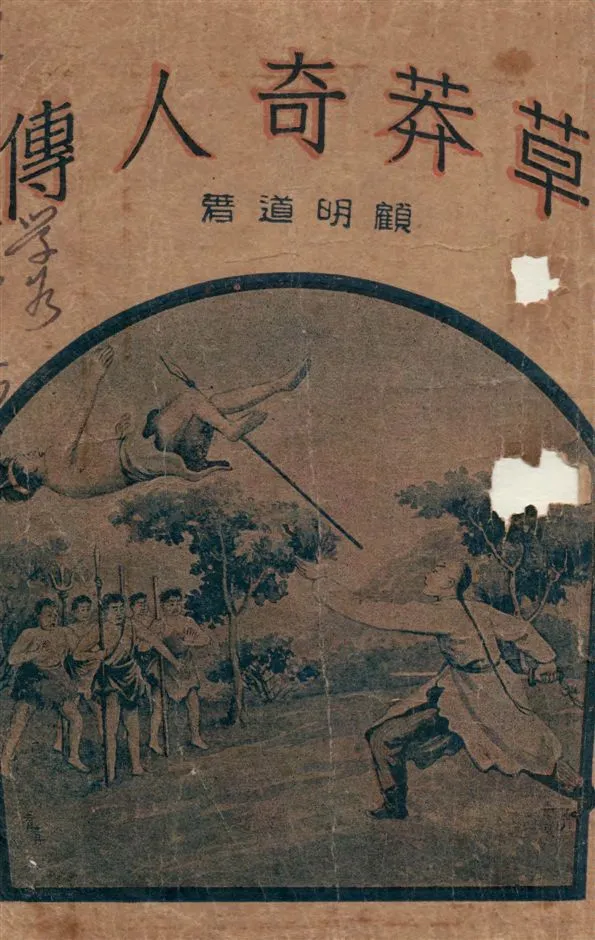 草莽奇人傳
顧明道著